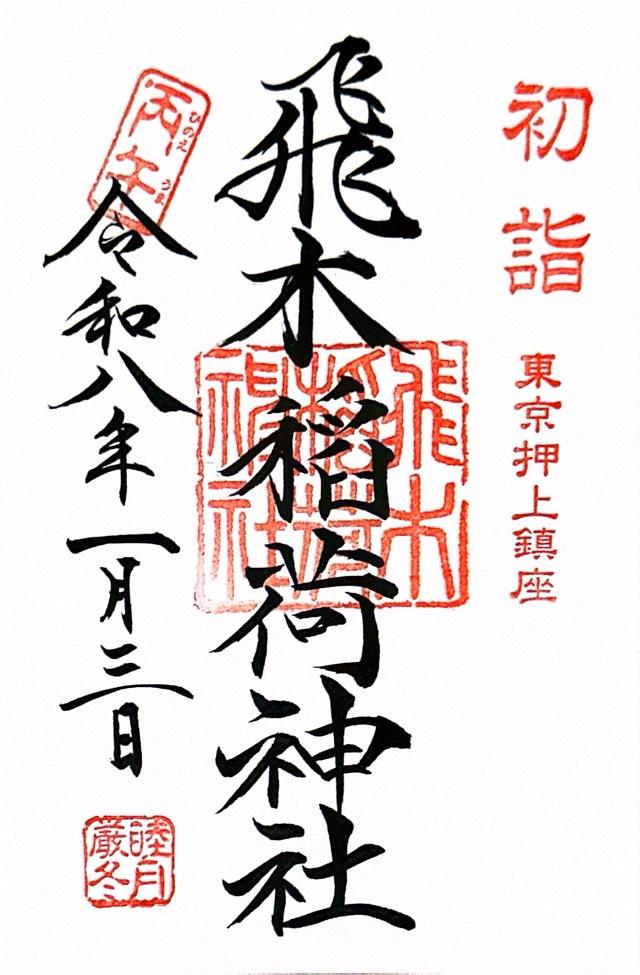 初詣
東京押上鎮座
飛木稲荷神社
飛木
稲荷
神社
丙午
ひのえ うま
令和八年一月三日
睦月
厳冬